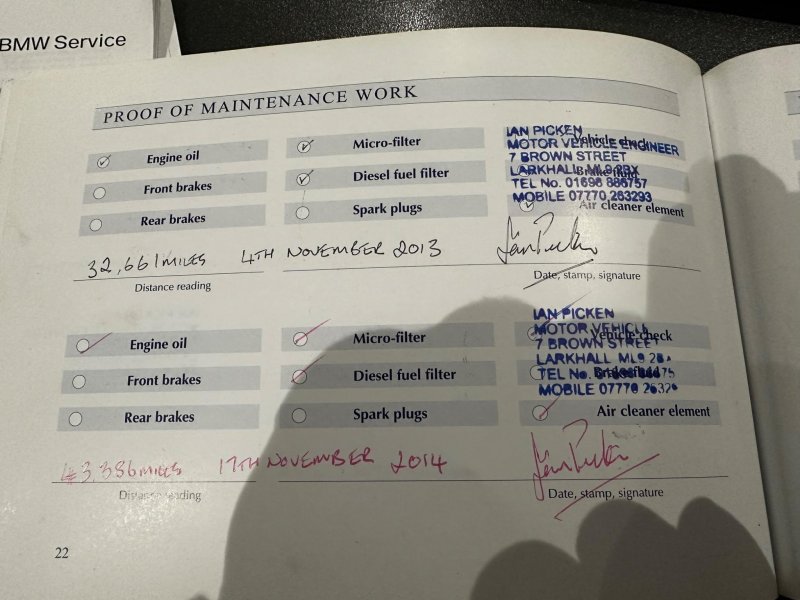 BMW Service
PROOF OF MAINTENANCE WORK
Engine oil
Micro-filter
Vehicle check
Front brakes
Diesel fuel filter
Brake fluid
Rear brakes
Spark plugs
Air cleaner element
IAN PICKEN
MOTOR VEHICLE ENGINEER
7 BROWN STREET
LARKHALL ML9
TEL No. 01698 886757
MOBILE 07770 263293
32,661 MILES 4TH NOVEMBER 2013
Ian Picken
Distance reading
Date, stamp, signature
Engine oil
Micro-filter
Vehicle check
Front brakes
Diesel fuel filter
Brake fluid
Rear brakes
Spark plugs
Air cleaner element
IAN PICKEN
MOTOR VEHICL
7 BROWN STREET
LARKHALL ML9
TEL No.
MOBILE 07770
43,386 MILES 17TH NOVEMBER 2014
Ian Picken
Distance reading
Date, stamp, signature
22